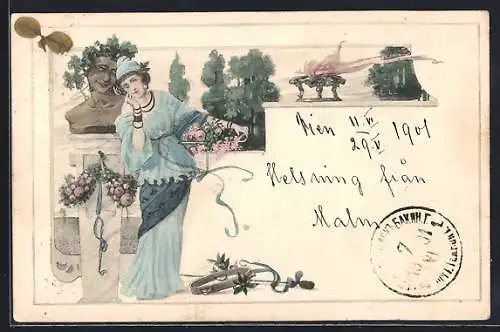 Wien 11/VI 1901
29/V
Helsning från
Malm